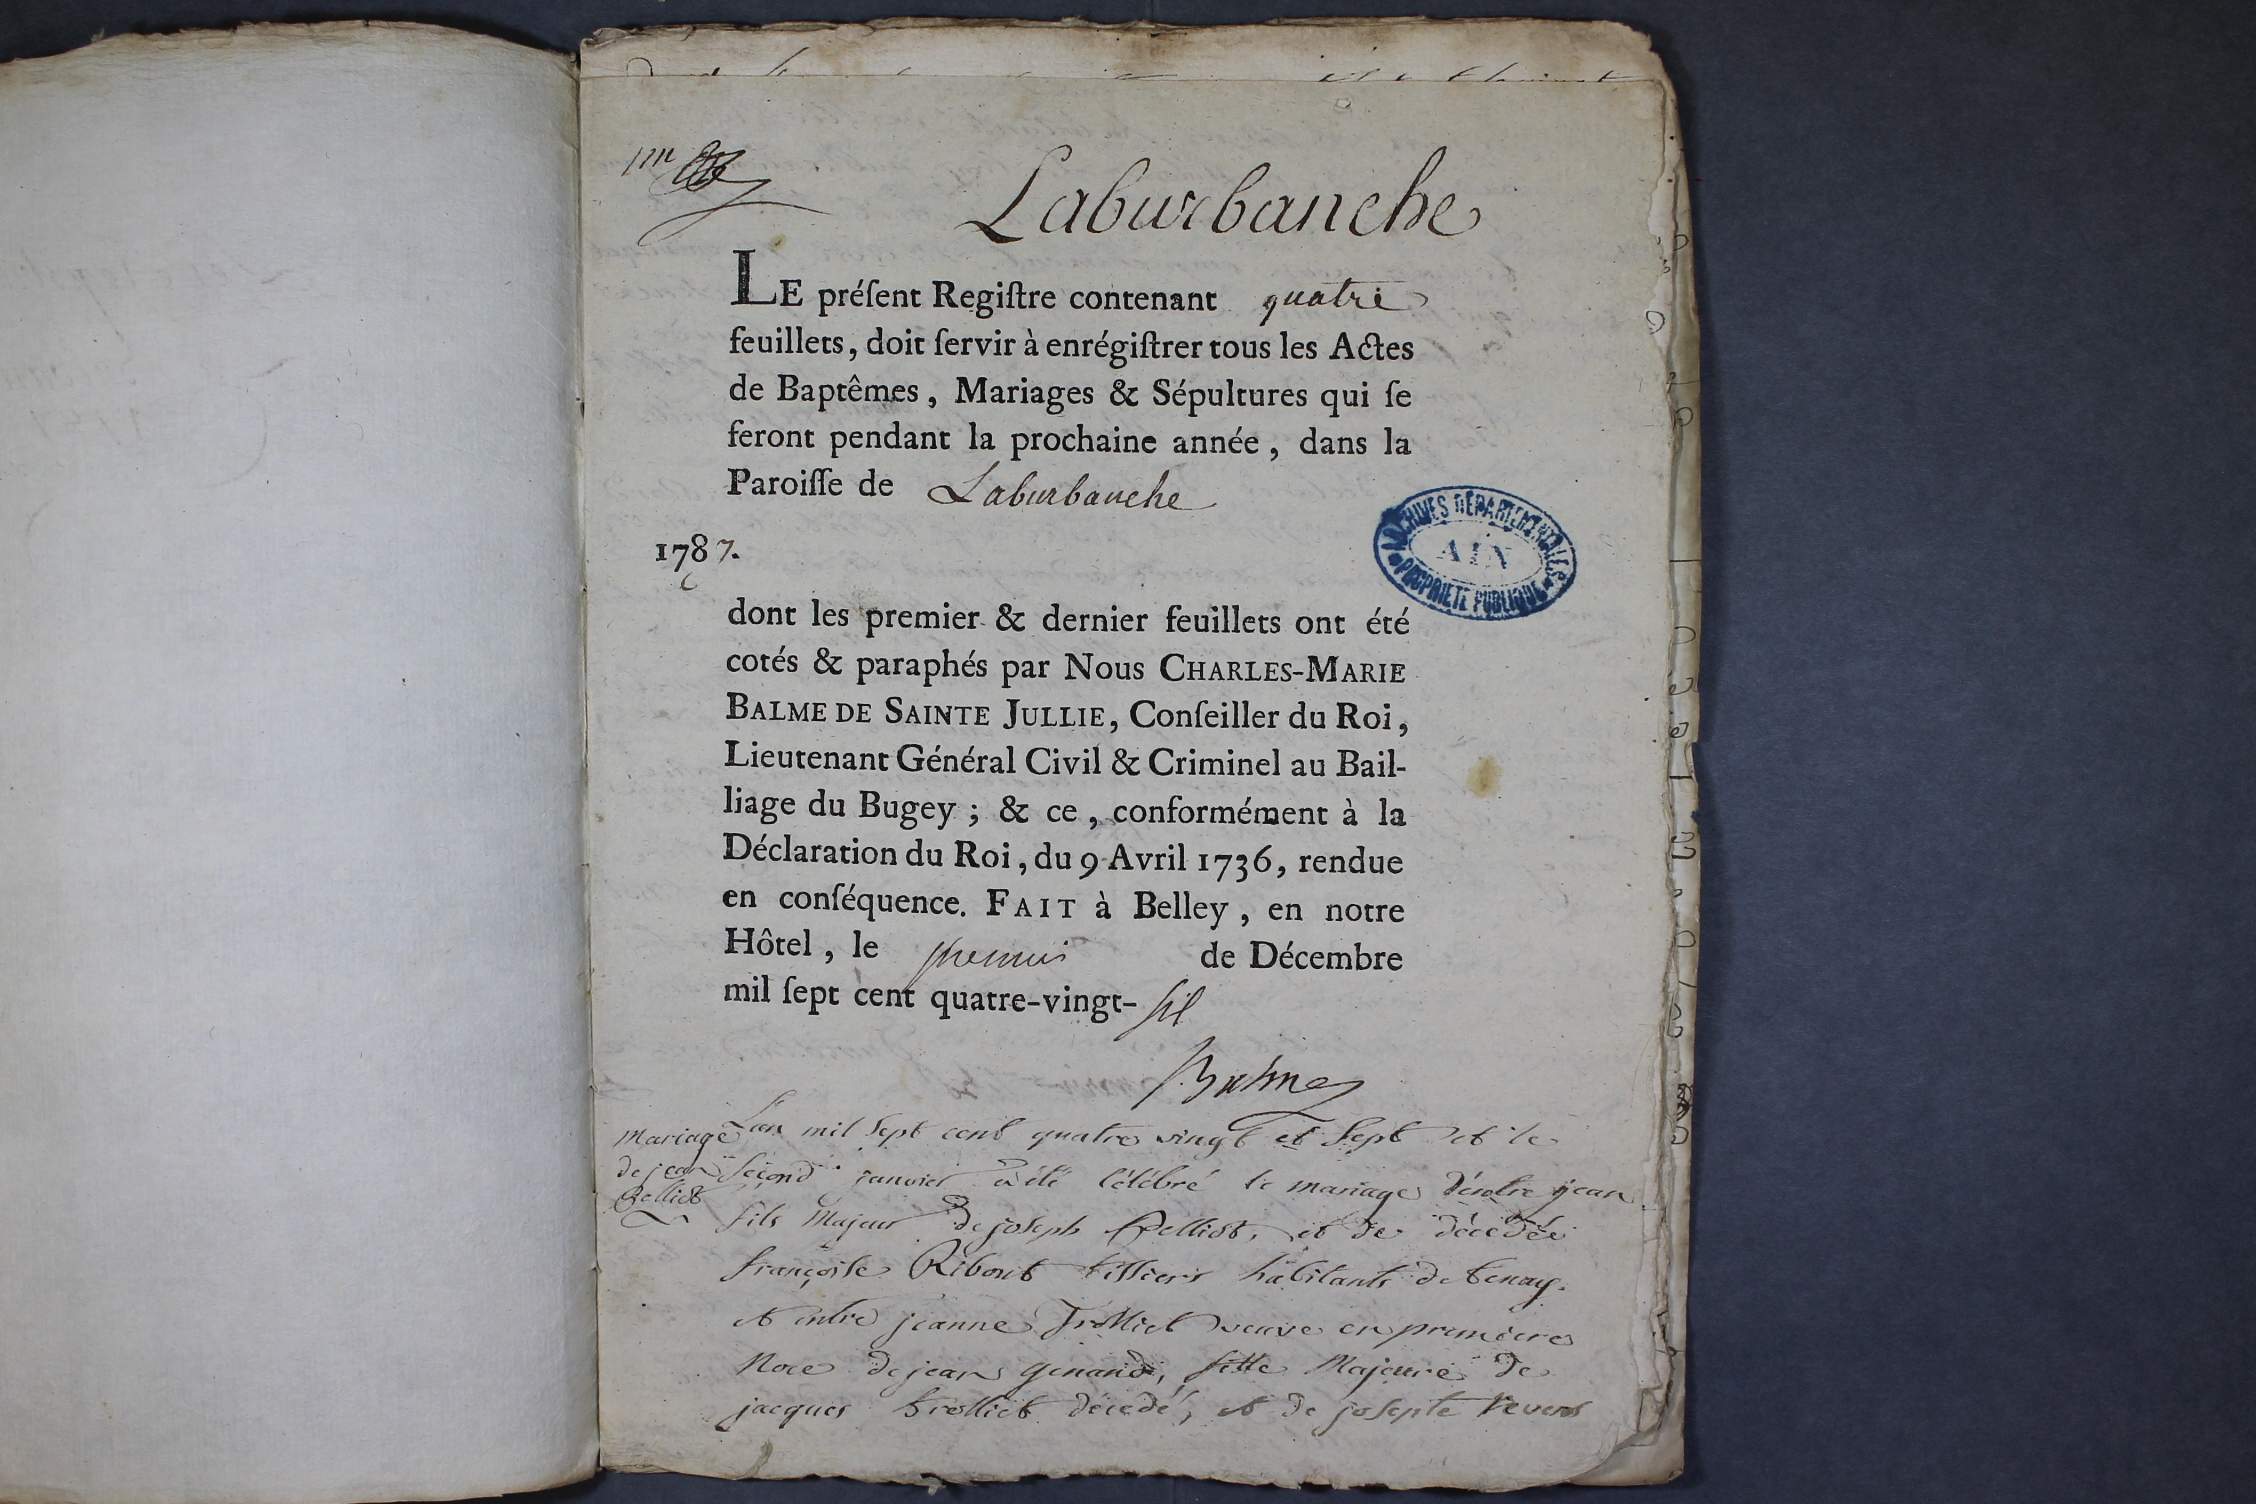 Laburbanche
LE préſent Regiſtre contenant quatre
feuillets, doit ſervir à enrégiſtrer tous les Actes
de Baptêmes, Mariages & Sépultures qui ſe
feront pendant la prochaine année, dans la
Paroiſſe de Laburbanche
1787.
ARCHIVES DÉPARTEMENTALES
AIN
PROPRIETE PUBLIQUE
dont les premier & dernier feuillets ont été
cotés & paraphés par Nous CHARLES-MARIE
BALME DE SAINTE JULLIE, Conſeiller du Roi,
Lieutenant Général Civil & Criminel au Bail-
liage du Bugey ; & ce, conformément à la
Déclaration du Roi, du 9 Avril 1736, rendue
en conſéquence. FAIT à Belley, en notre
Hôtel, le premier de Décembre
mil ſept cent quatre-vingt-six
Balme
mariage
de jean
L'an mil sept cent quatre vingt et sept et le
second janvier a été célébré le mariage d'entre jean
fils majeur de joseph et de décédée
françoise Ribout tissiers habitants de tenay.
et entre jeanne trolliet veuve en premiere
Noce de jean genand, fille Majeure de
jacques trolliet décedé, et de josepte